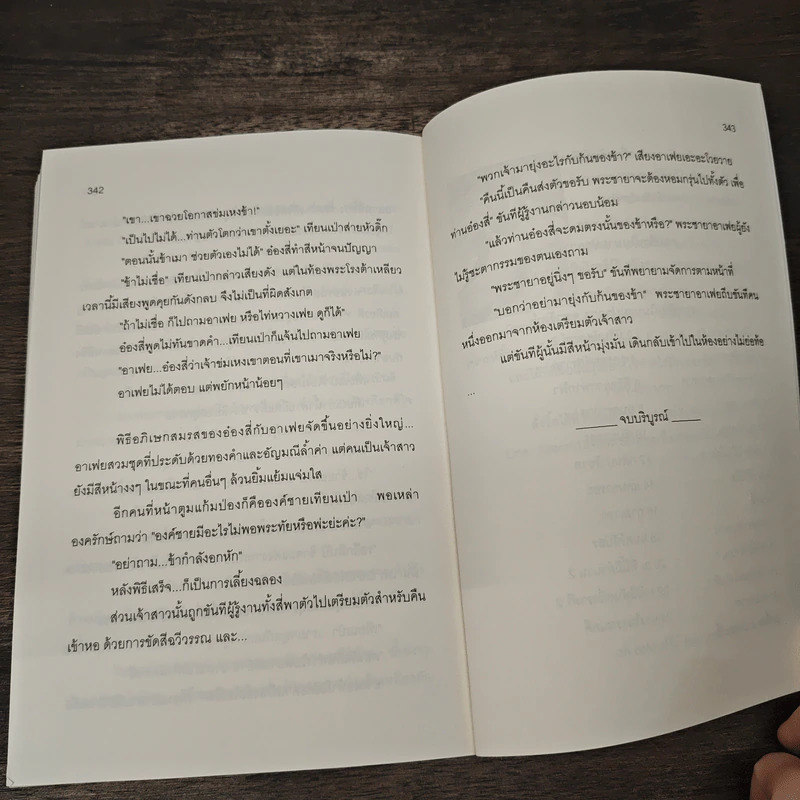 342
"เขา...เขาฉวยโอกาสข่มเหงข้า!"
"เป็นไปไม่ได้...ท่านตัวโตกว่าเขาตั้งเยอะ" เทียนเป่าส่ายหัวดิ๊ก
"ตอนนั้นข้าเมา ช่วยตัวเองไม่ได้" อ๋องสี่ทำสีหน้าจนปัญญา
"ข้าไม่เชื่อ" เทียนเป่ากล่าวเสียงดัง แต่ในท้องพระโรงต้าเหลียว
เวลานี้มีเสียงพูดคุยกันดังกลบ จึงไม่เป็นที่ผิดสังเกต
"ถ้าไม่เชื่อ ก็ไปถามอาเฟย หรือไท่หวางเฟย ดูก็ได้"
อ๋องสี่พูดไม่ทันขาดคำ...เทียนเป่าก็แจ้นไปถามอาเฟย
"อาเฟย...อ๋องสี่ว่าเจ้าข่มเหงเขาตอนที่เขาเมาจริงหรือไม่?"
อาเฟยไม่ได้ตอบ แต่พยักหน้าน้อยๆ
พิธีอภิเษกสมรสของอ๋องสี่กับอาเฟยจัดขึ้นอย่างยิ่งใหญ่...
อาเฟยสวมชุดที่ประดับด้วยทองคำและอัญมณีล้ำค่า แต่คนเป็นเจ้าสาว
ยังมีสีหน้างงๆ ในขณะที่คนอื่นๆ ล้วนยิ้มแย้มแจ่มใส
อีกคนที่หน้าตูมแก้มป่องก็คือองค์ชายเทียนเป่า พอเหล่า
องครักษ์ถามว่า "องค์ชายมีอะไรไม่พอพระทัยหรือพ่ะย่ะค่ะ?"
"อย่าถาม...ข้ากำลังอกหัก"
หลังพิธีเสร็จ...ก็เป็นการเลี้ยงฉลอง
ส่วนเจ้าสาวนั้นถูกขันทีผู้รู้งานทั้งสี่พาตัวไปเตรียมตัวสำหรับคืน
เข้าหอ ด้วยการขัดสีฉวีวรรณ และ...
343
"พวกเจ้ามายุ่งอะไรกับก้นของข้า?" เสียงอาเฟยเอะอะโวยวาย
"คืนนี้เป็นคืนส่งตัวขอรับ พระชายาจะต้องหอมกรุ่นไปทั้งตัว เพื่อ
ท่านอ๋องสี่" ขันทีผู้รู้งานกล่าวนอบน้อม
"แล้วท่านอ๋องสี่จะดมตรงนั้นของข้าหรือ?" พระชายาอาเฟยผู้ยัง
ไม่รู้ชะตากรรมของตนเองถาม
"พระชายาอยู่นิ่งๆ ขอรับ" ขันทีพยายามจัดการตามหน้าที่
"บอกว่าอย่ามายุ่งกับก้นของข้า" พระชายาอาเฟยถีบขันทีคน
หนึ่งออกมาจากห้องเตรียมตัวเจ้าสาว
แต่ขันทีผู้นั้นมีสีหน้ามุ่งมั่น เดินกลับเข้าไปในห้องอย่างไม่ย่อท้อ
...
จบบริบูรณ์